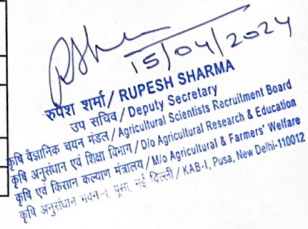 15/04/2024
रुपेश शर्मा / RUPESH SHARMA
उप सचिव / Deputy Secretary
कृषि वैज्ञानिक चयन मंडल / Agricultural Scientists Recruitment Board
कृषि अनुसंधान एवं शिक्षा विभाग / D/o Agricultural Research & Education
कृषि एवं किसान कल्याण मंत्रालय / M/o Agricultural & Farmers' Welfare
कृषि अनुसंधान भवन-I, पूसा, नई दिल्ली / KAB-I, Pusa, New Delhi-110012